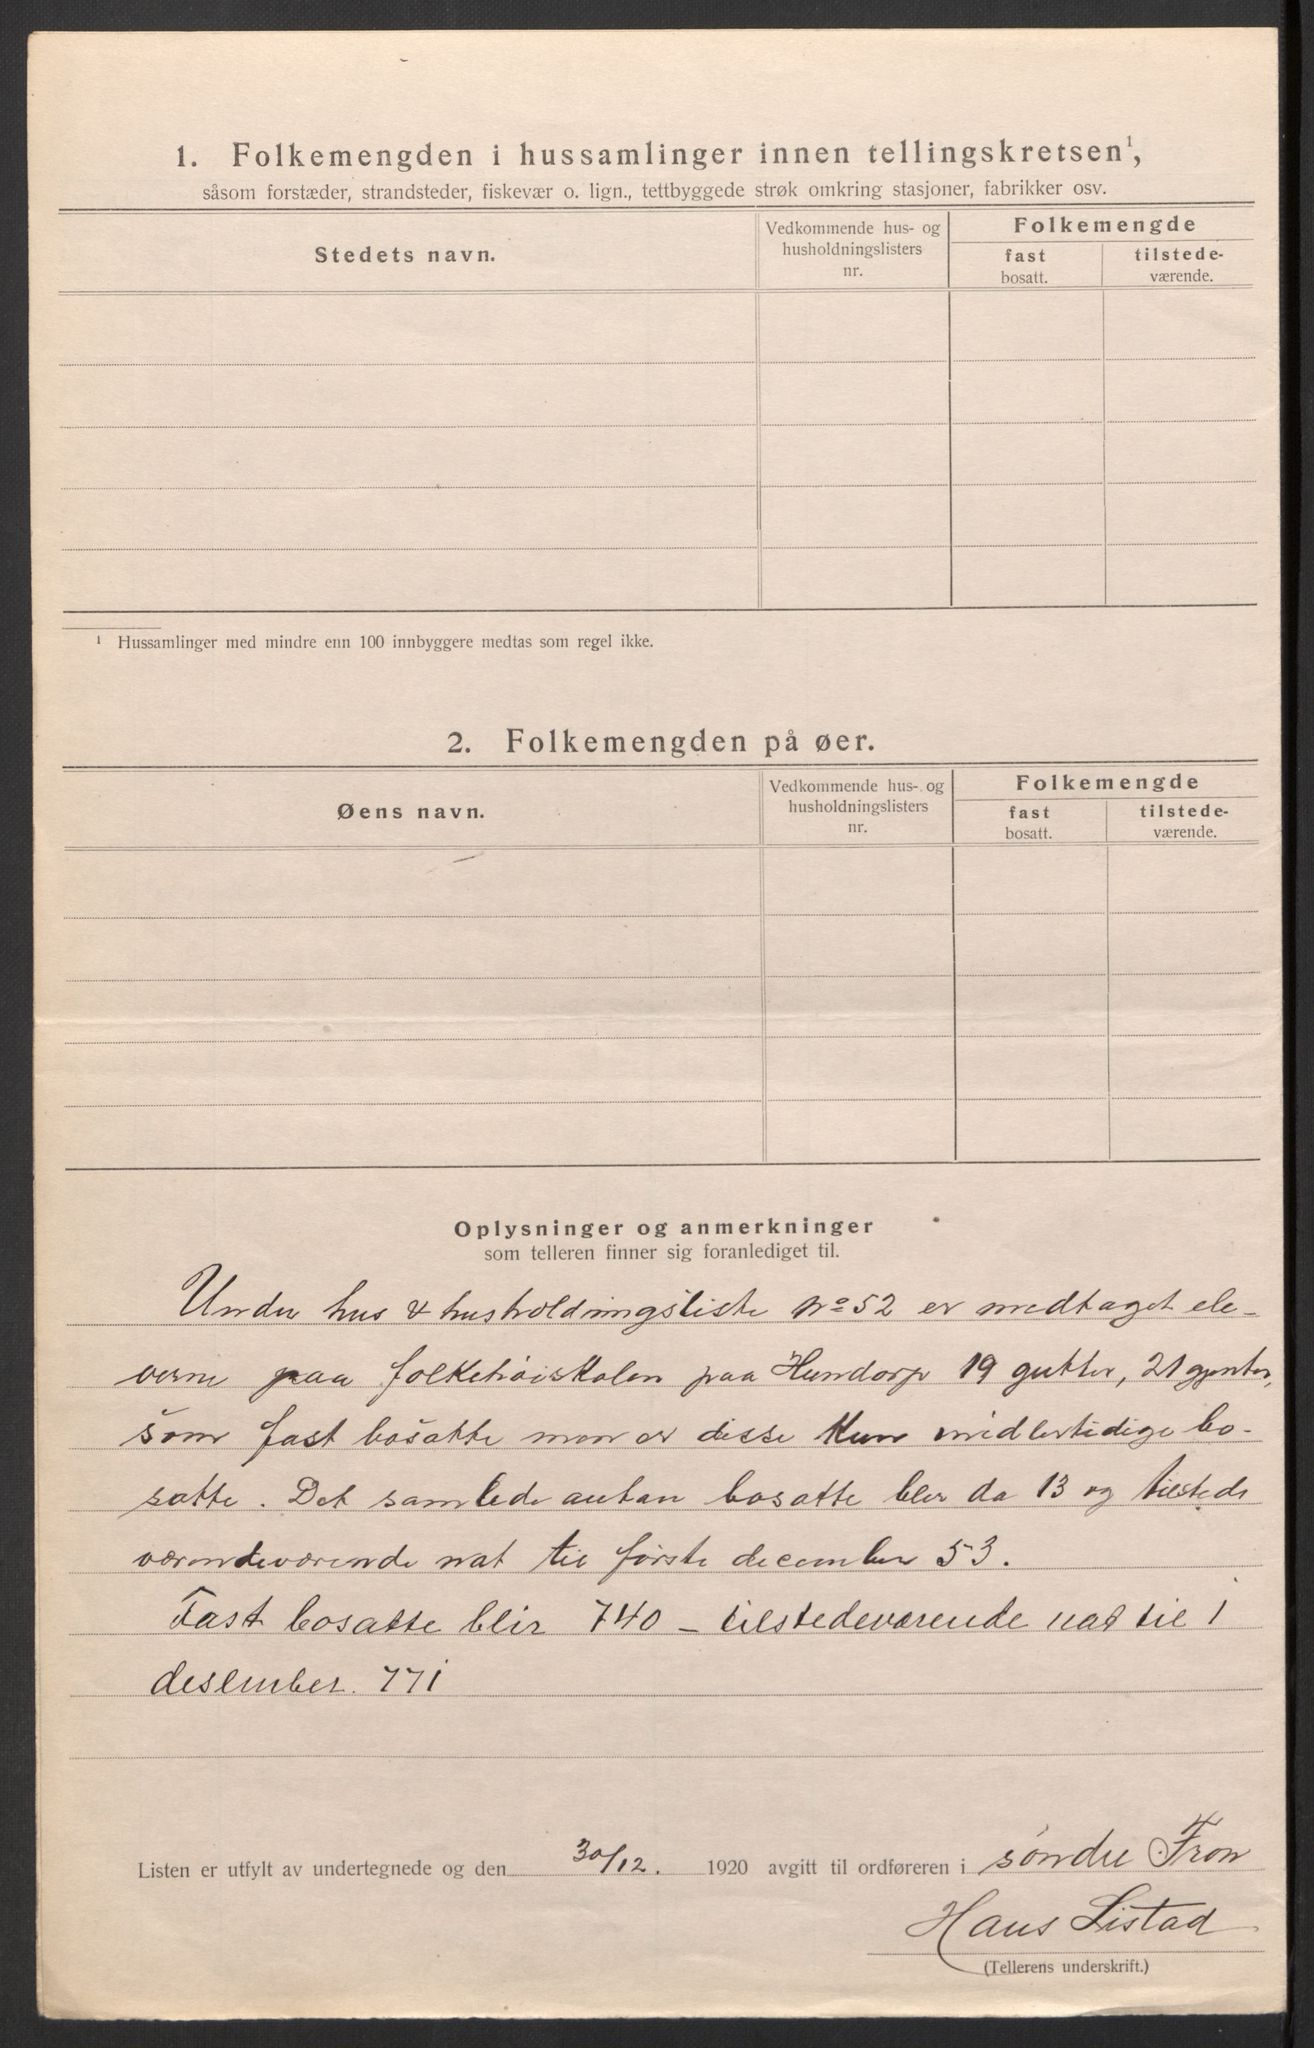 1. Folkemengden i hussamlinger innen tellingskretsen¹,
såsom forstæder, strandsteder, fiskevær o. lign., tettbyggede strøk omkring stasjoner, fabrikker osv.
Stedets navn.
Vedkommende hus- og
husholdningslisters
nr.
Folkemengde
fast
bosatt.
tilstede-
værende.
¹ Hussamlinger med mindre enn 100 innbyggere medtas som regel ikke.
2. Folkemengden på øer.
Øens navn.
Vedkommende hus- og
husholdningslisters
nr.
Folkemengde
fast
bosatt.
tilstede-
værende.
Oplysninger og anmerkninger
som telleren finner sig foranlediget til.
Under hus & husholdningsliste No 52 er medtaget ele-
verne paa folkehøiskolen paa Hundorp 19 gutter, 21 gjenter,
som fast bosatte men er disse kun midlertidige bo-
satte. Det samlede antan bosatte bler da 13 og tilstede
værendeværende nat til første december 53.
Fast bosatte blir 740 – tilstedeværende nat til 1
desember. 771
Listen er utfylt av undertegnede og den 30/12. 1920 avgitt til ordføreren i søndre Fron
Hans Listad
(Tellerens underskrift.)